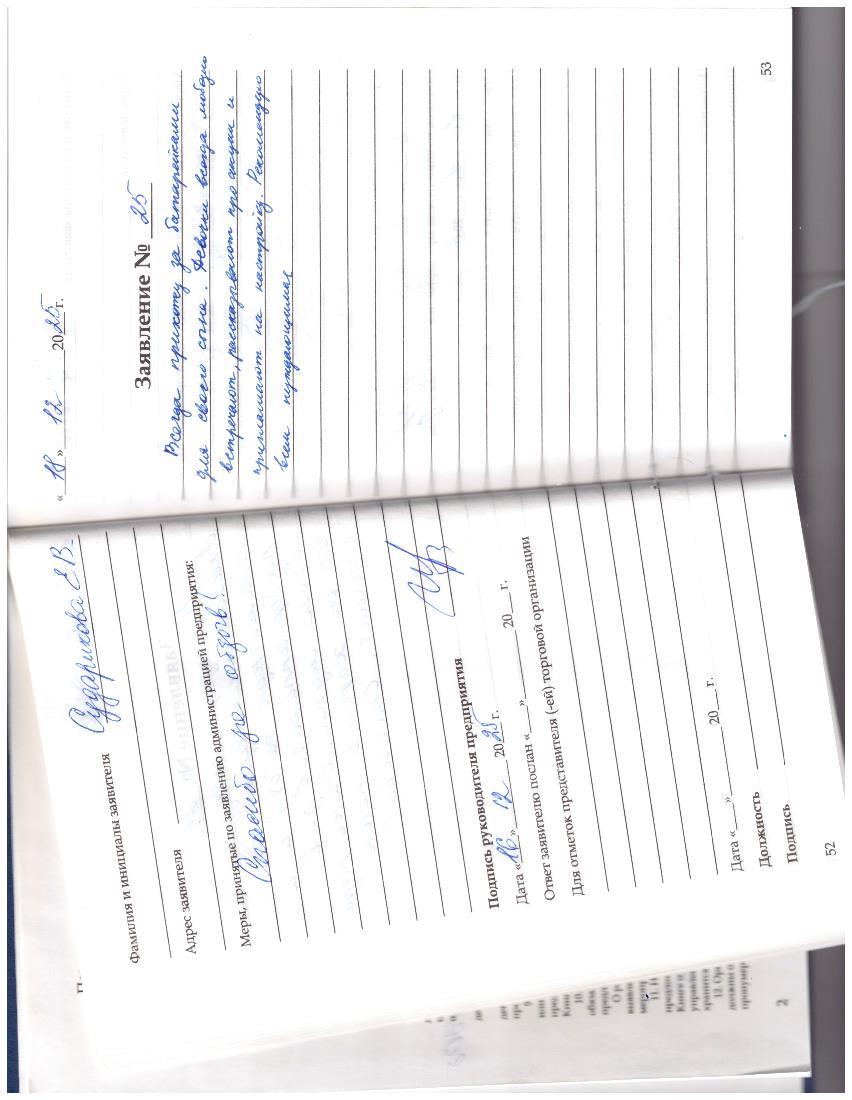 Фамилия и инициалы заявителя Сударикова Е В
Адрес заявителя
Меры, принятые по заявлению администрацией предприятия:
Спасибо за отзыв!
Подпись руководителя предприятия
Дата «16» 12 2025 г.
Ответ заявителю послан «___» ______ 20___ г.
Для отметок представителя (-ей) торговой организации
Дата «___» ______ 20___ г.
Должность
Подпись
52
«18» 12 2025 г.
Заявление № 25
Всегда прихожу за батарейками
для своего сына. Девочки всегда любезно
встречают, рассказывают про акции и
приглашают на настройку. Рекомендую
всем нуждающимся
53
2